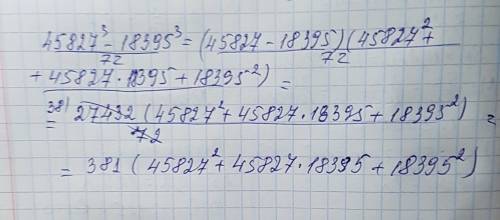 45827³ - 18395³ / 72 = (45827 - 18395)(45827² +
+ 45827 · 18395 + 18395²) / 72 =
= 381 27432 (45827² + 45827 · 18395 + 18395²) / 72 =
= 381 (45827² + 45827 · 18395 + 18395²)